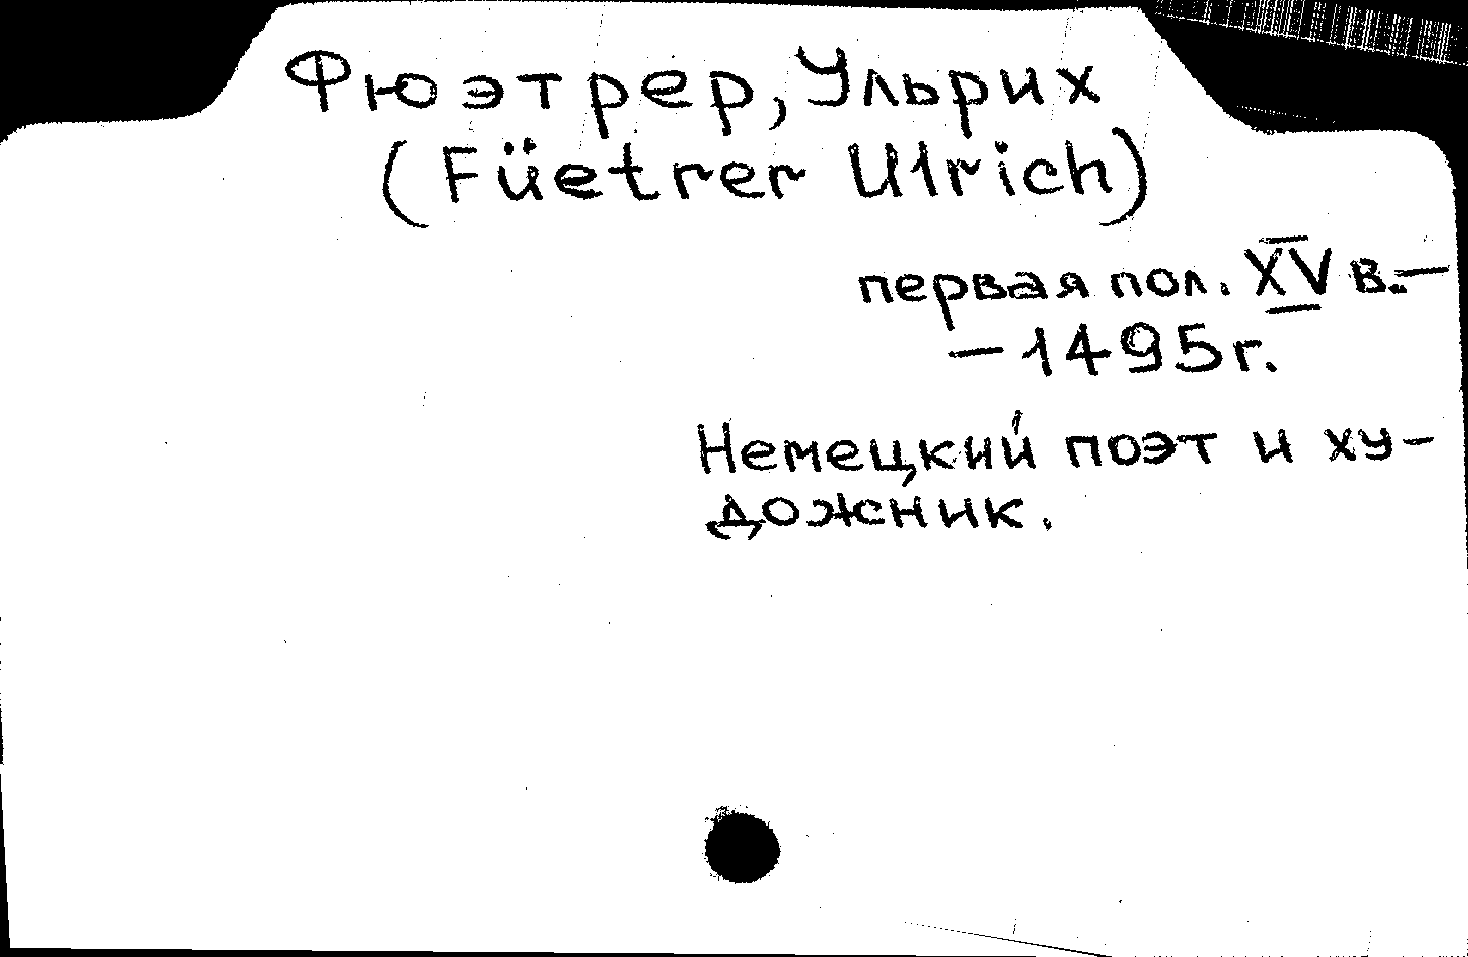 Фюэтрер, Ульрих
(Füetrer Ulrich)
первая пол. XV в.—
— 1495 г.
Немецкий поэт и ху-
дожник.